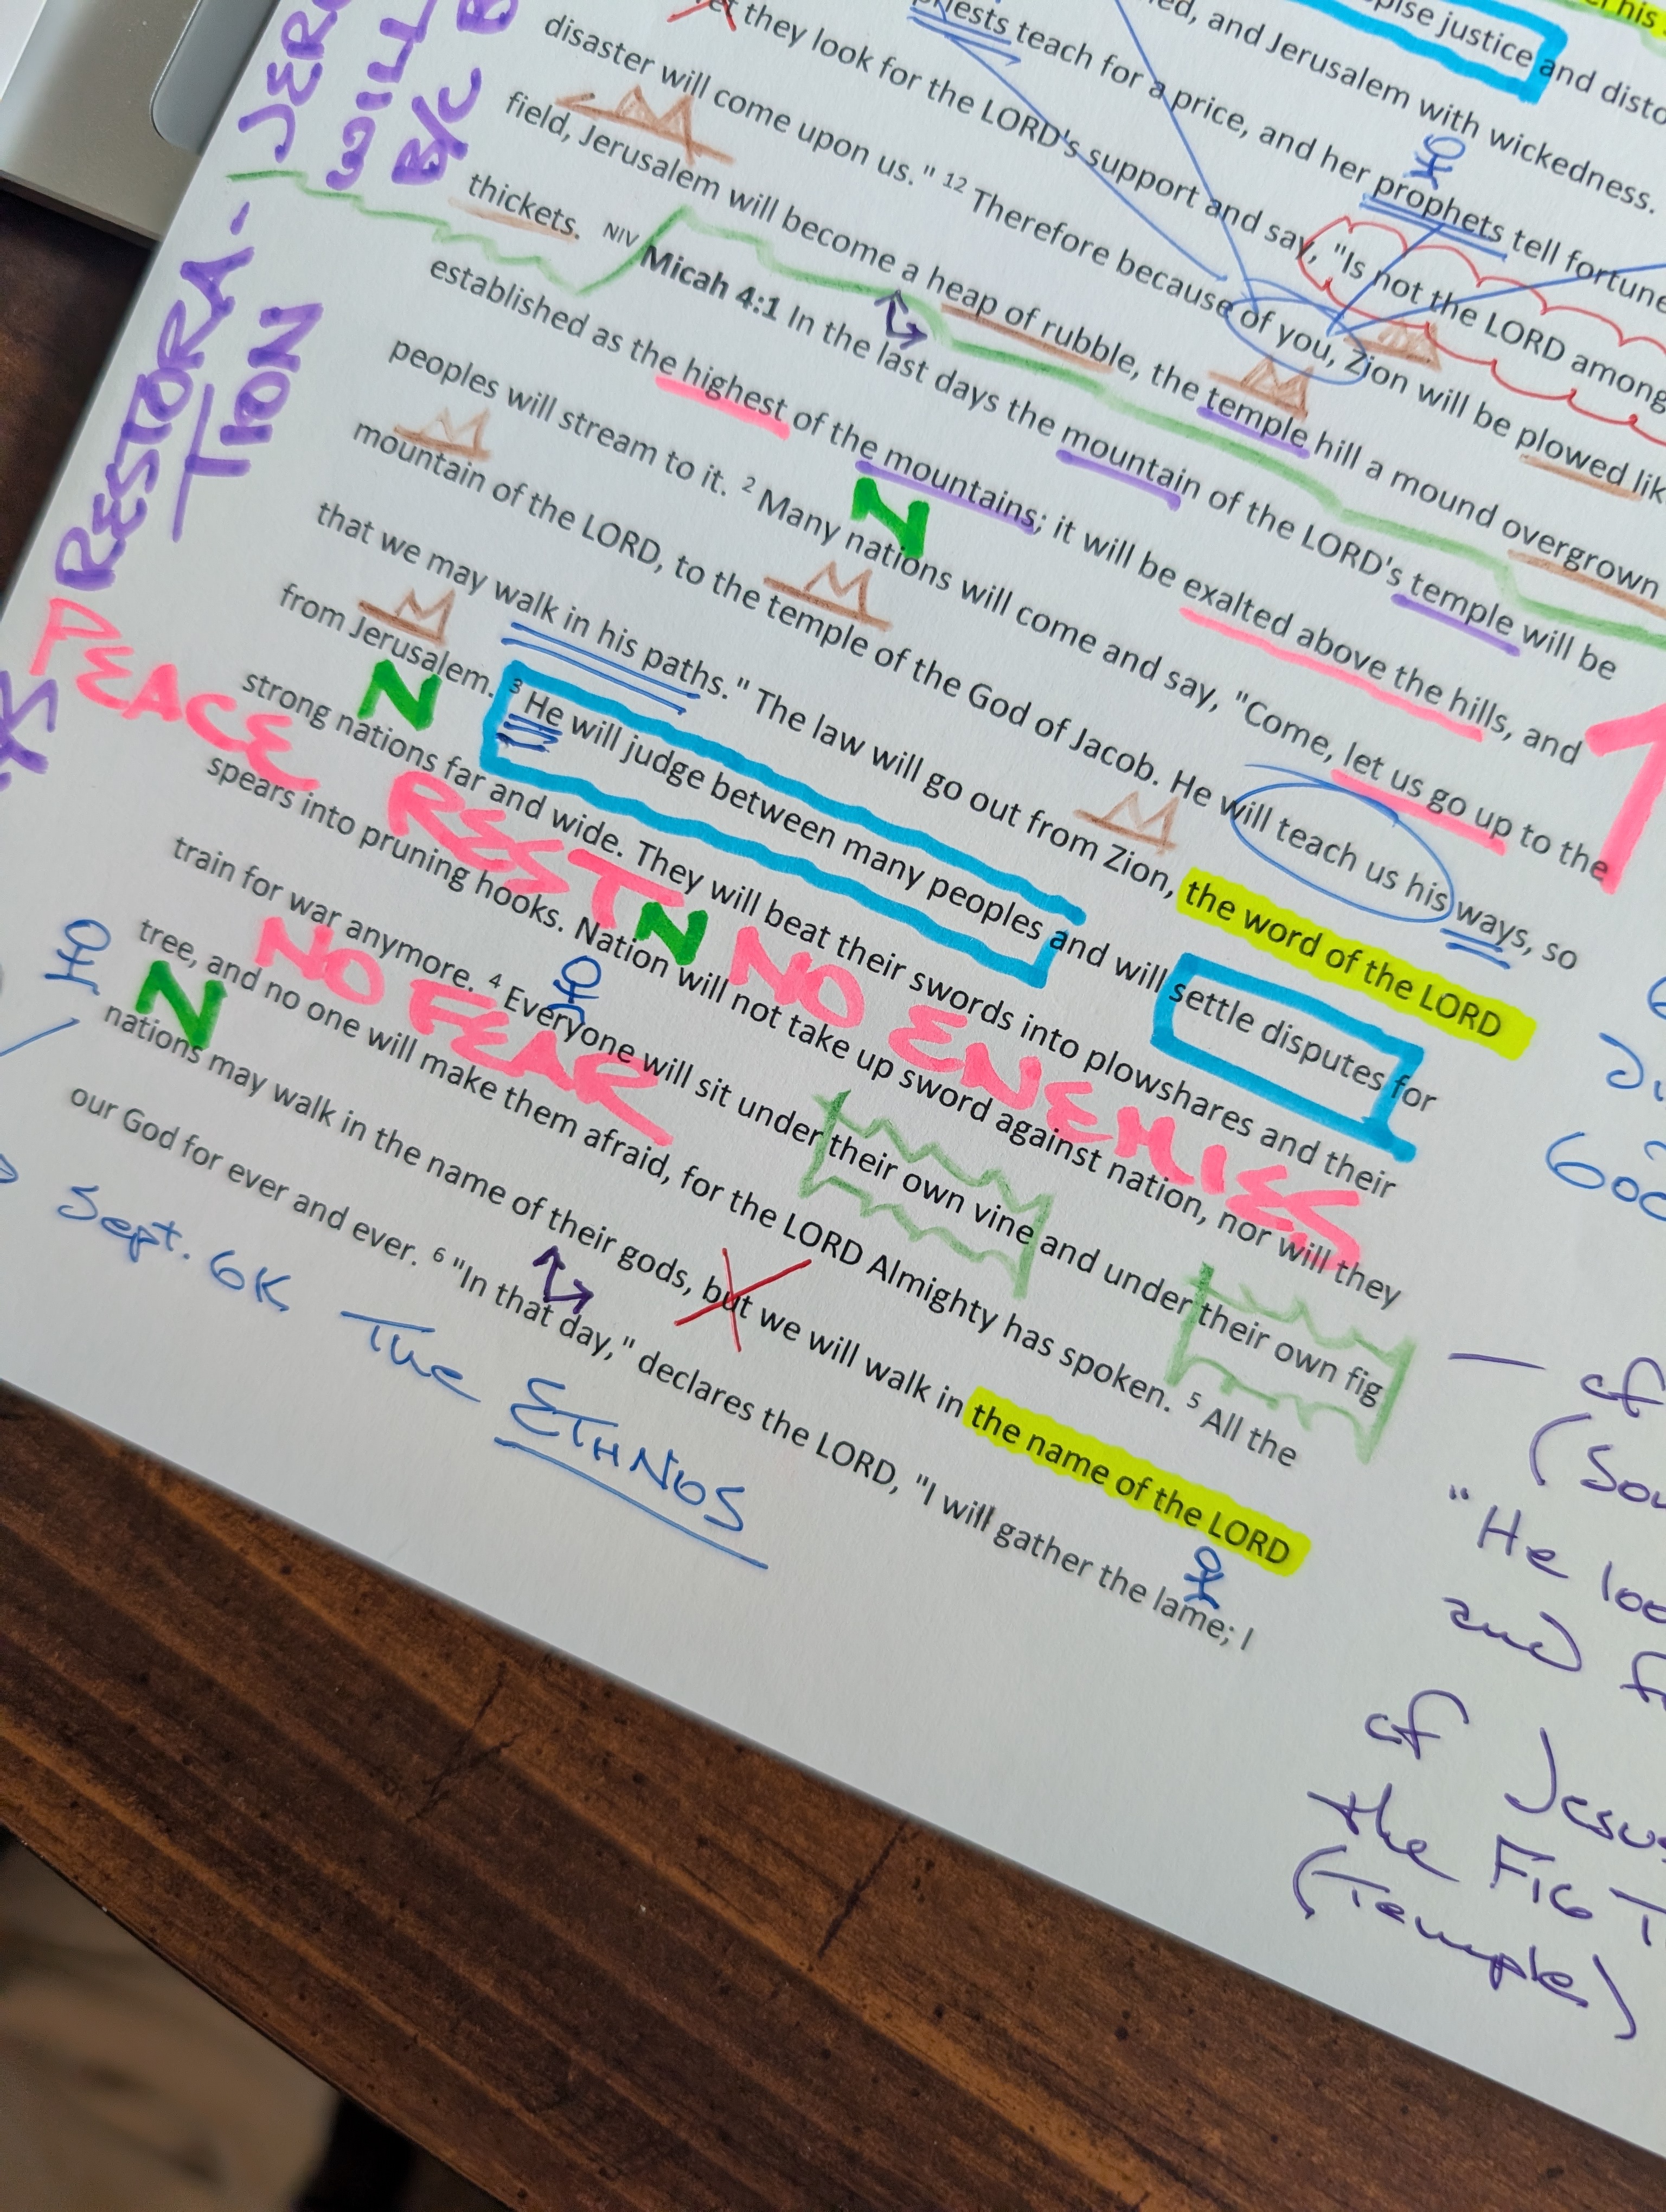 his
justice and
and Jerusalem with wickedness.
priests teach for a price, and her prophets tell
they look for the LORD's support and say, "Is not the LORD among
disaster will come upon us." 12 Therefore because of you, Zion will be plowed
field, Jerusalem will become a heap of rubble, the temple hill a mound overgrown
thickets. NIV Micah 4:1 In the last days the mountain of the LORD's temple will be
established as the highest of the mountains; it will be exalted above the hills, and
peoples will stream to it. 2 Many nations will come and say, "Come, let us go up to the
mountain of the LORD, to the temple of the God of Jacob. He will teach us his ways, so
that we may walk in his paths." The law will go out from Zion, the word of the LORD
from Jerusalem. 3 He will judge between many peoples and will settle disputes for
strong nations far and wide. They will beat their swords into plowshares and their
spears into pruning hooks. Nation will not take up sword against nation, nor will they
train for war anymore. 4 Everyone will sit under their own vine and under their own fig
tree, and no one will make them afraid, for the LORD Almighty has spoken. 5 All the
nations may walk in the name of their gods, but we will walk in the name of the LORD
our God for ever and ever. 6 "In that day," declares the LORD, "I will gather the lame; I
JER
WILL
B/C
RESTORA-
TION
N
N
N
N
PEACE
REST
NO ENEMIES
NO FEAR
Sept. GK The ETHNOS
cf
"He
and
of Jesus
the FIG
(Temple)